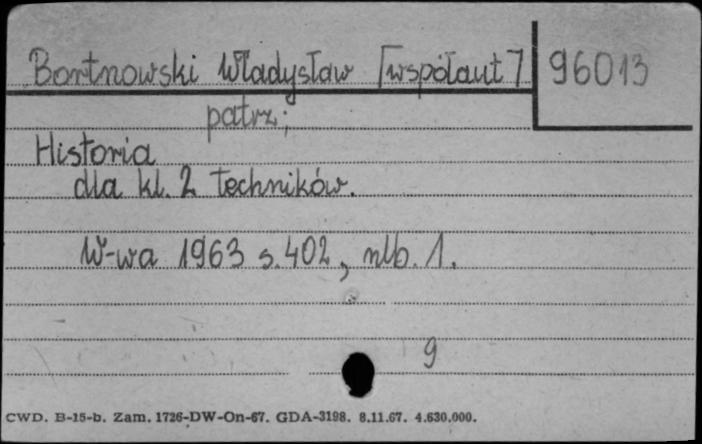 Bortnowski Władysław [współaut] 96013
patrz;
Historia
dla kl. 2 techników.
W-wa 1963 s. 402, nlb. 1.
9
CWD. B-15-b. Zam. 1726-DW-On-67. GDA-3198. 8.11.67. 4.630.000.